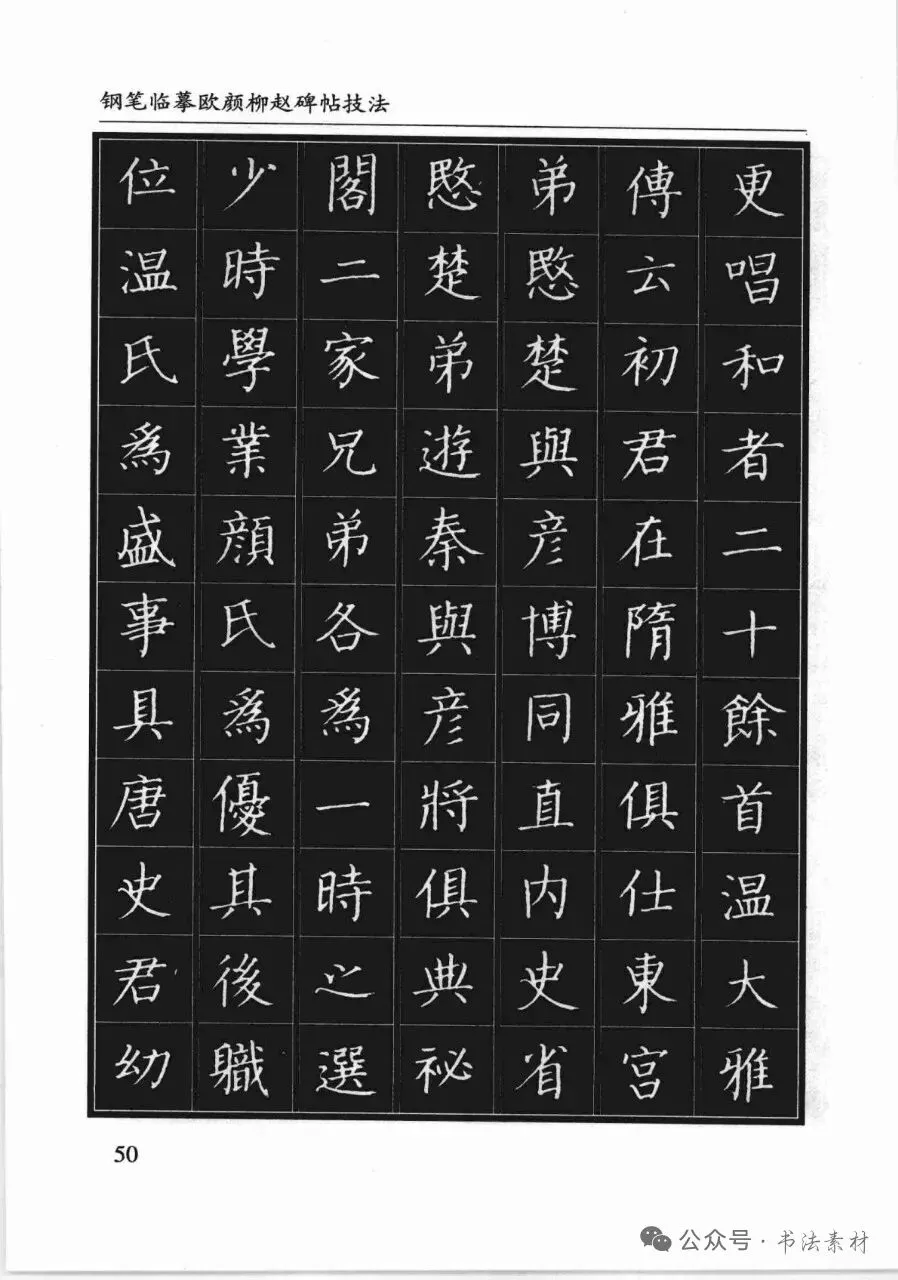 钢笔临摹欧颜柳赵碑帖技法
更唱和者二十餘首温大雅
傅云初君在隋雅俱仕東宫
弟愍楚與彦博同直内史省
愍楚弟遊秦與彦将俱典祕
閣二家兄弟各為一時之選
少時學業顔氏為優其後職
位温氏為盛事具唐史君幼
50
公众号·书法素材